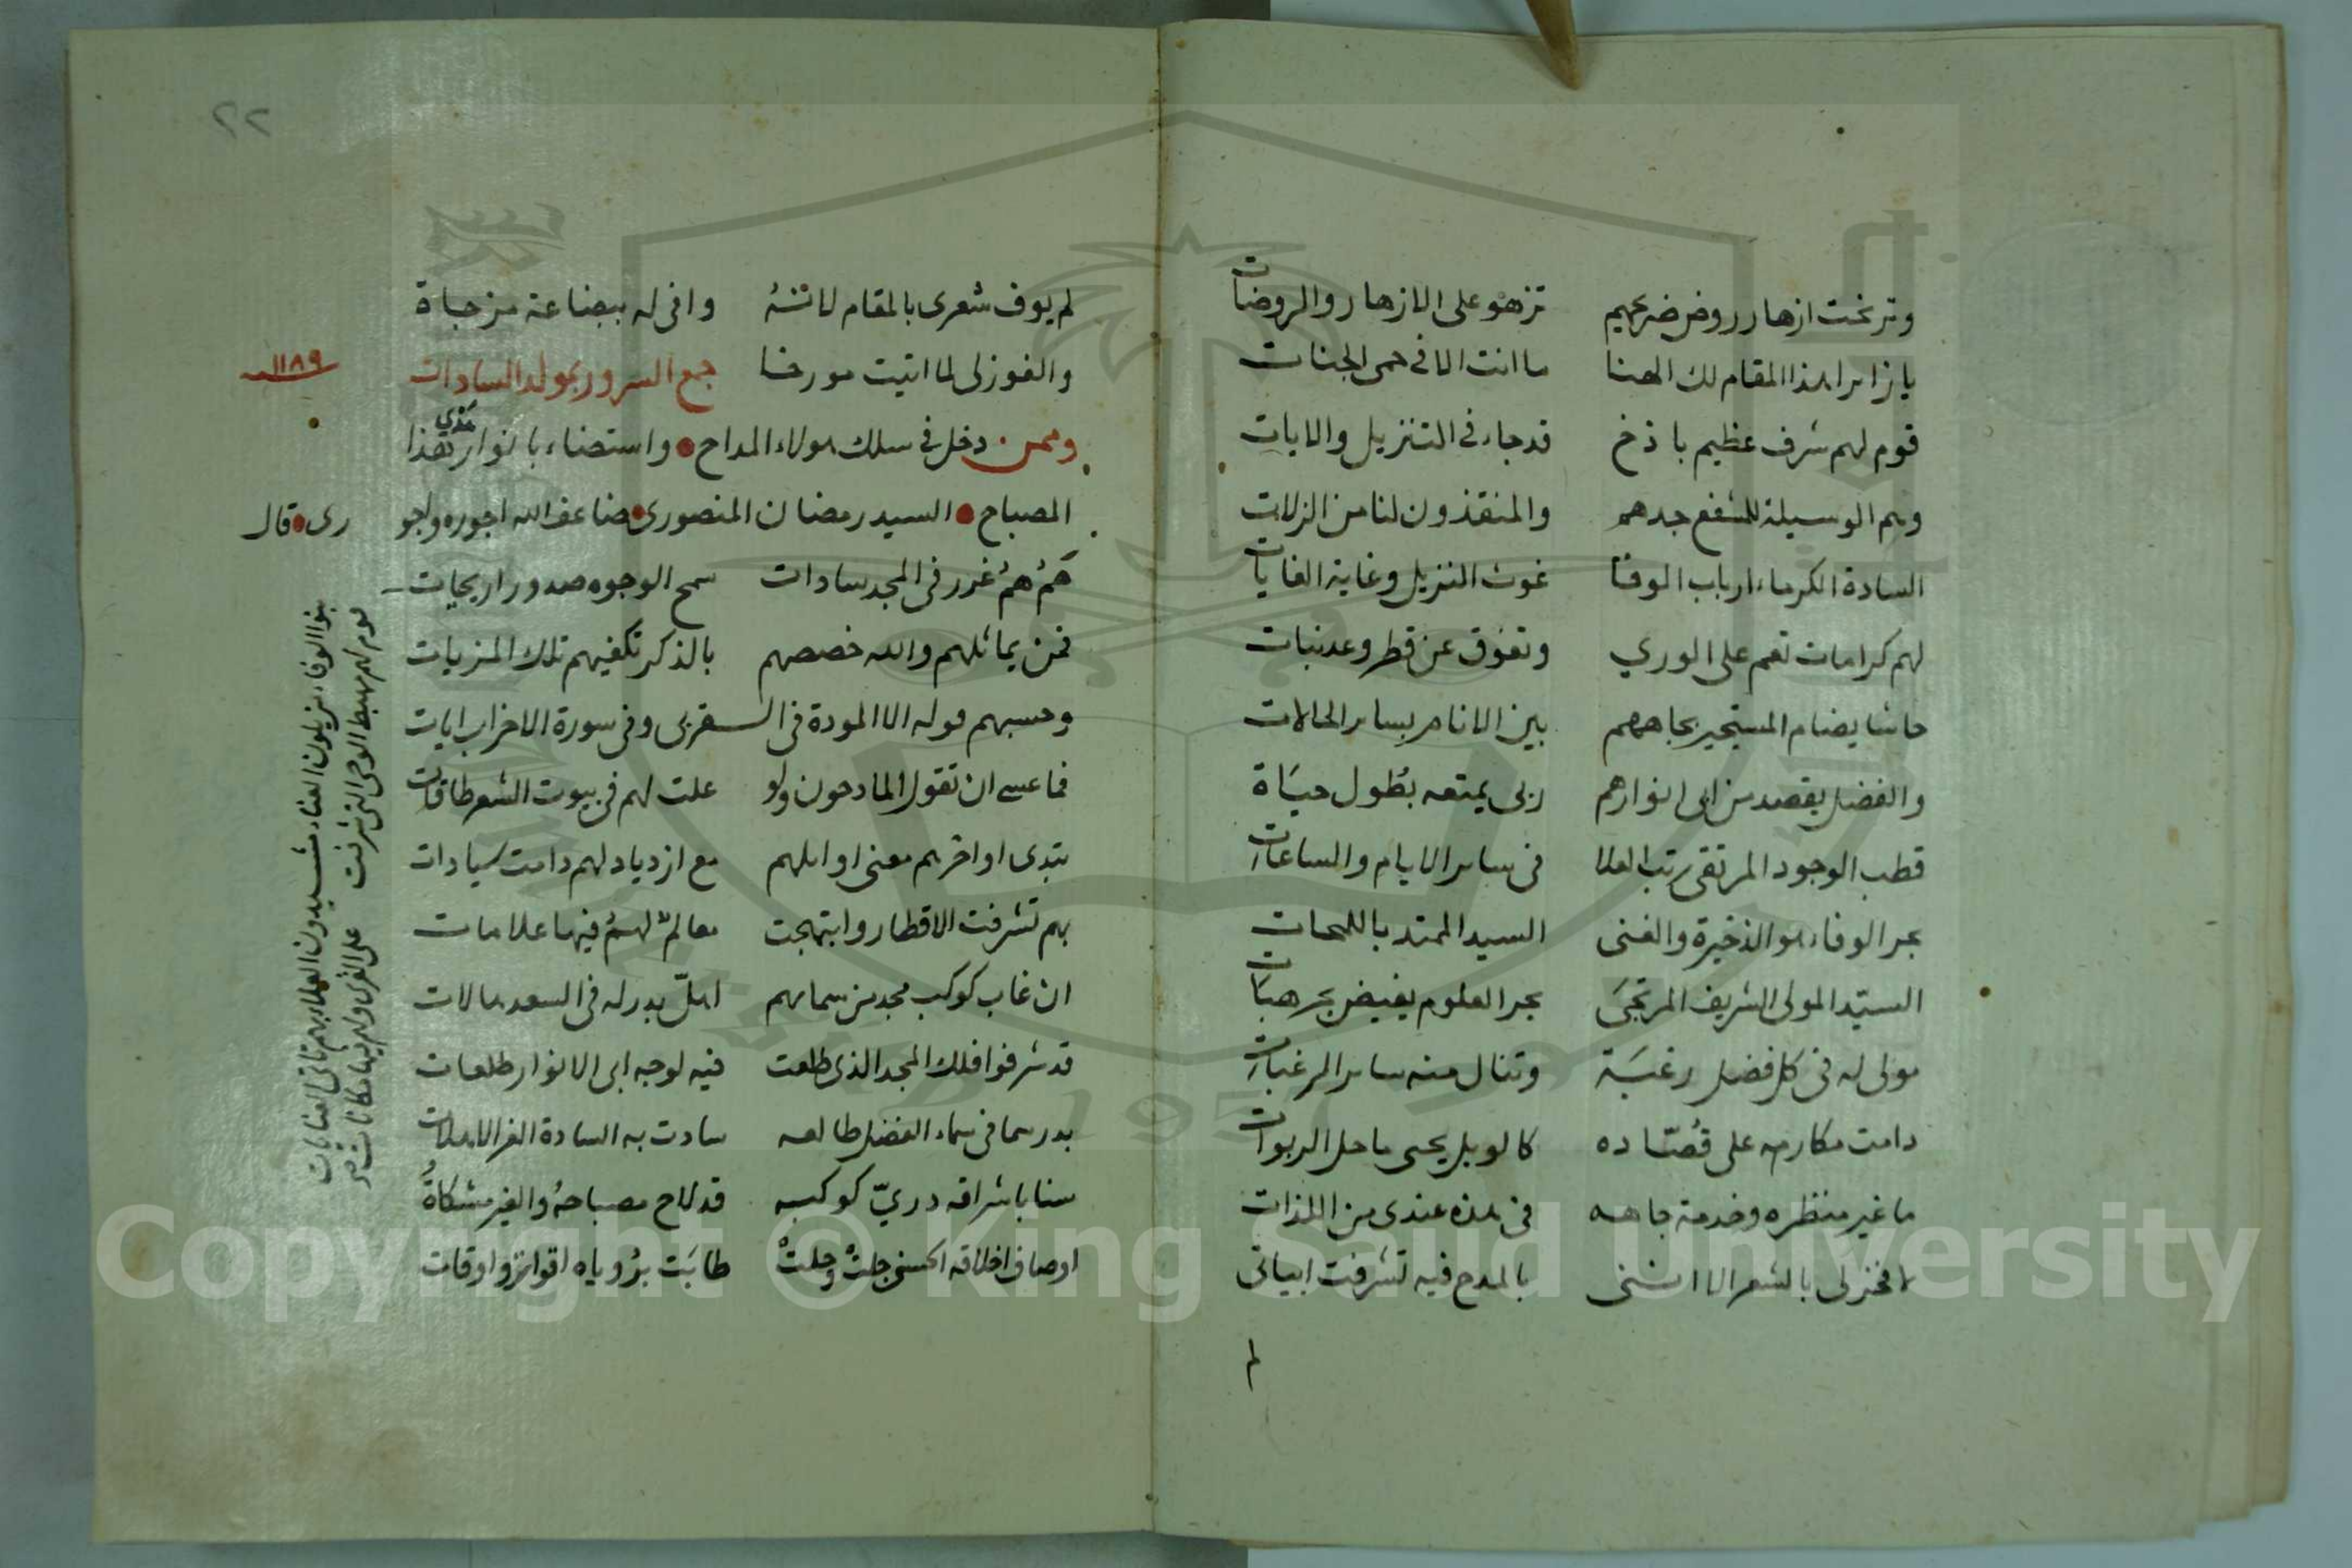 وترنحت ازهار روض ضريحهم تزهو على الازهار والروضات
يا زايرا هذا المقام لك الهنا ما انت الا في حمى الجنات
قوم لهم شرف عظيم باذخ قد جاء في التنزيل والايات
وهم الوسيلة للشفع جدهم والمنقذون لنا من الزلات
السادة الكرماء ارباب الوفا غوث النزيل وغاية الغايات
لهم كرامات تعم على الوري وتفوق عن قطر وعد نبات
حاشا يضام المستجير بجاههم بين الانام بساير الحالات
والفضل يقصد من ابى انوارهم ربى يمتعه بطول حياة
قطب الوجود المرتقى رتب العلا فى ساير الايام والساعات
بحر الوفاء هو الذخيرة والغنى السيد الممتد باللمحات
السيد المولى الشريف المرتجى بحر العلوم يفيض بحر هبات
مولى له فى كل فضل رغبة وتنال منه ساير الرغبات
دامت مكارمه على قصاده كالوبل يحيى ماحل الربوات
ما غير منظره وخدمة جاهه فى هذه عندى من اللذات
لا فخر لى بالشعر الا اننى بالمدح فيه تشرفت ابياتى
لم
٢٢
لم يوف شعرى بالمقام لانه وافى له ببضاعة مزجاة
والفوز لى لما اتيت مورخا جمع السرور بمولد السادات ١١٨٩
وممن دخل في سلك هولاء المداح واستضاء بانوار هذا
هذي
المصباح السيد رمضان المنصورى ضاعف الله اجوره واجورى قال
هم هم غرر فى المجد سادات سمح الوجوه صدور اريحيات
فمن يماثلهم والله خصصهم بالذكر تكفيهم تلك المزيات
وحسبهم قوله الا المودة فى القربى وفى سورة الاحزاب ايات
فما عسى ان تقول المادحون ولو علت لهم فى بيوت الشعر طاقات
تبدى اواخرهم معنى اوايلهم مع ازدياد لهم دامت سيادات
بهم تشرفت الاقطار وابتهجت معالم لهم فيها علامات
ان غاب كوكب مجد من سمايهم اهل بدر له فى السعد هالات
قد شرفوا فلك المجد الذى طلعت فيه لوجه ابى الانوار طلعات
بدر سما فى سماء الفضل طالعه سادت به السادة الغر الاهلات
سنا باشراقه دري كوكبه قد لاح مصباحه والغير مشكاة
اوصاف اخلاقه الحسنى جلت وحلت طابت برؤياه اقوات واوقات
بنوا الوفاء يزيلون العناء مشيدون العلا بهم تاتى العنايات
قوم لهم مهبط الوحى التى شرفت على القرى ولهم فيها مكانات